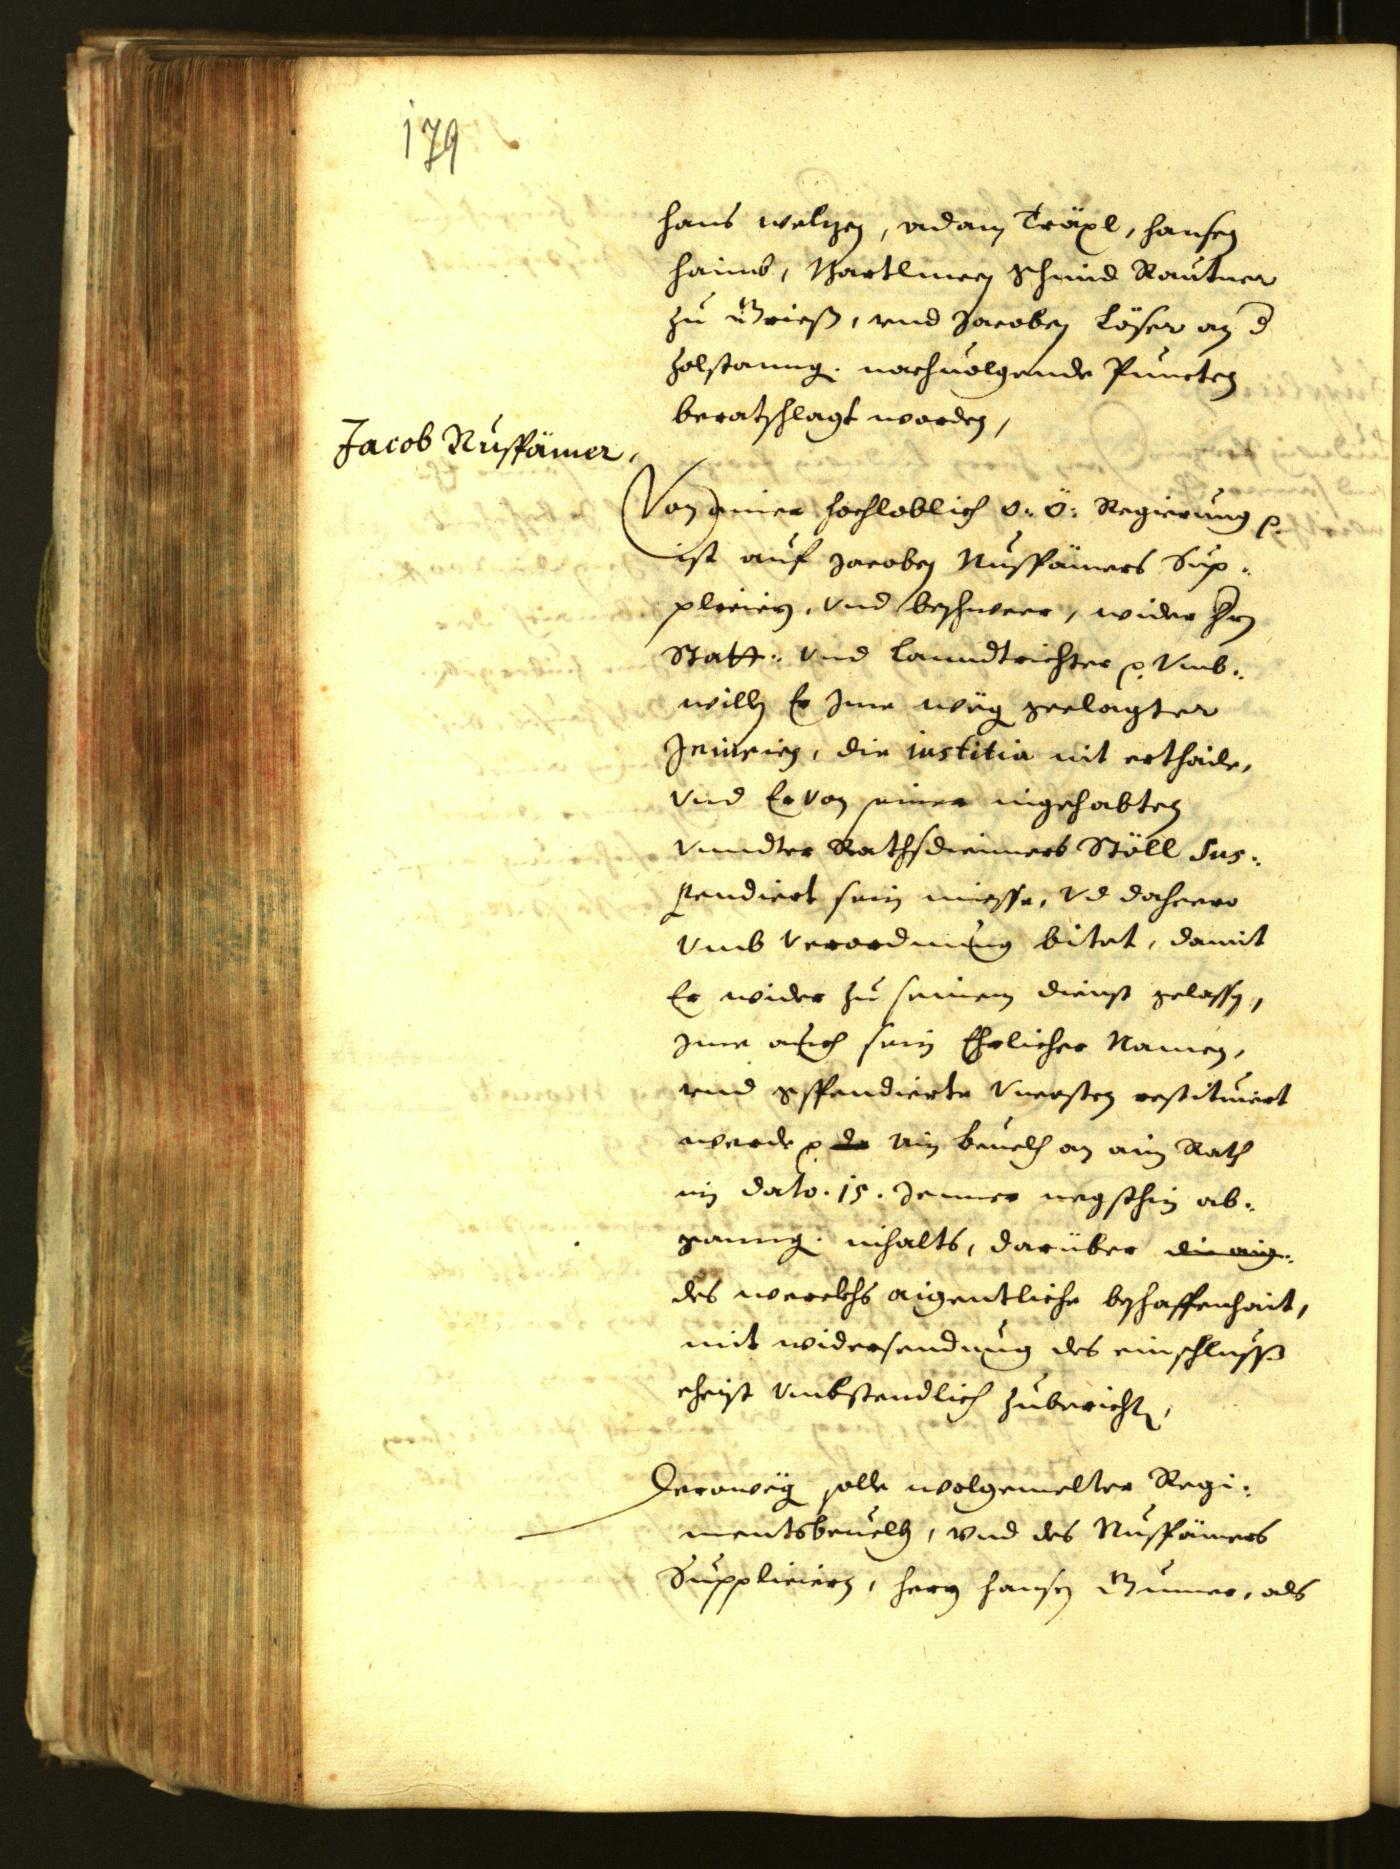 179
hans welzen, adam Träxl, hansen
haimb, Bartlmeen Schmid Rautner
zu Grieß, vnd Jacoben Löser an d
holstanng. nachuolgende Puncten
beratschlagt worden,
Jacob Nusspämer,
Von einer hochloblich o: ö: Regierung p.
ist auf Jacoben Nusspämers Sup:
plicieren, vnd beschweer, wider Hrn
Statt: vnd Lanndtrichter p. Vmb:
willen Er Ime weg geclagter
Iniurien, die iustitia nit erthaile,
Vnd Er von seiner ingehabten
Vnndter Rathsdienners Stöll Sus:
pendiert sein miesse, Vd dahero
vmb Verordnung bitet, damit
Er wider zu seinem dienst gelassen,
Ime auch sein Ehrlicher Namen,
vnd offendierte Vnersten restituiert
werde p. de ein beuelch an ain Rath
in dato. 15. Jenner negsthin ab:
ganng. inhalts, darüber die aig:
des wercklhs aigentliche beschaffenhait,
mit widersendung des einschluß
ehrist vmbstendlich zuberichten,
Deroweg solle wolgemelter Regi:
mentsbeuelch, vnd des Nusspämers
Supplicieren, herrn hansen Gumer, als